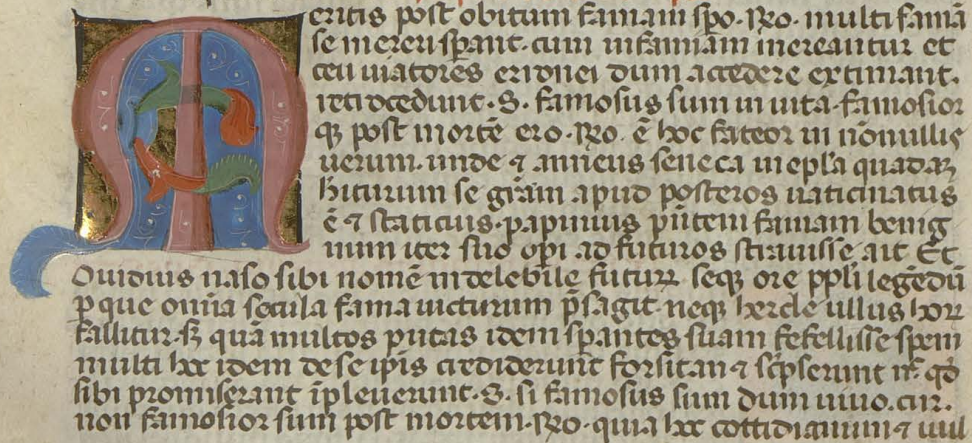 M eritis post obitum famam sp̄o. R̄o. multi famā
se mereri sp̄ant. cum infamiam mereantur et
ceu uiatores erronei dum accedere extimant.
retrocedunt. S. famosus sum in uita. famosior
qȝ post mortē ero. R̄o. ē hoc fateor in nōnullis
uerum. unde ⁊ anneus seneca in ep̄la quadaꝫ
hiturum se grām apud posteros uaticinatus
ē ⁊ staticius. papinius p̄ntem famam benig
num iter suo op̄i ad futuros strauisse ait Et
Ouidius naso sibi nomē indelebile futurꝝ seqꝫ ore ppl̄i legēdū
ꝑque om̄ia secula fama uicturum p̄sagit. neqꝫ hercle ullus hoꝝ
fallitur. sꝫ quā multos putas idem sp̄antes suam fefellisse spem
multi hoc idem de se ip̄is crediderunt forsitan ⁊ sc̄pserunt nͨ. qđ
sibi promiserant īpleuerunt. S. si famosus sum dum uiuo. cur.
non famosior sum post mortem. R̄o. quia hoc cottidianum ⁊ uul